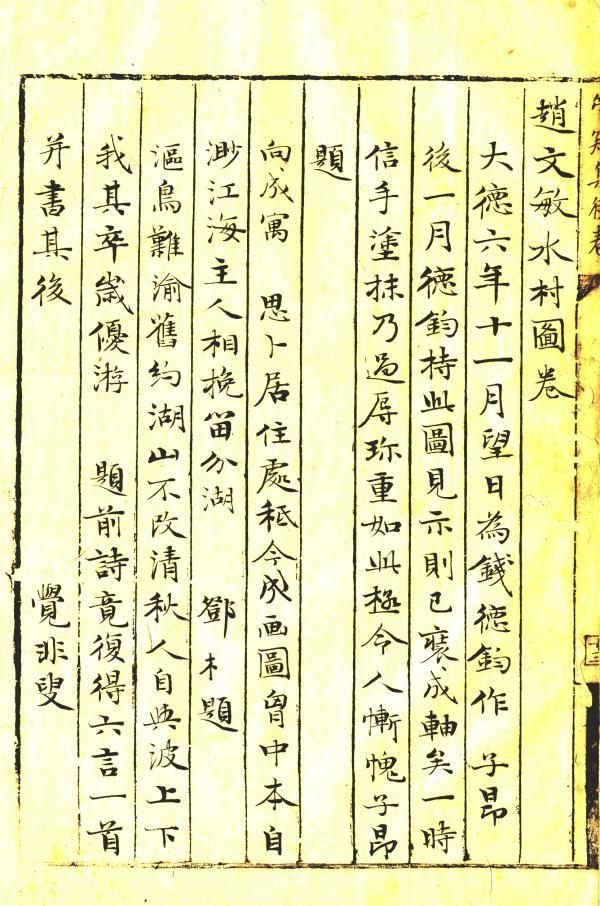 趙文敏水村圖卷
大德六年十一月望日為錢德鈞作 子昂
後一月德鈞持此圖見示則已裝成軸矣一時
信手塗抹乃過辱珎重如此極令人慚愧子昂
題
向成寓 思卜居住處秪今成画圖胷中本自
渺江海主人相挽留分湖 鄧木題
漚鳥難渝舊約湖山不改清秋人自與波上下
我其卒嵗優游 題前詩竟復得六言一首
并書其後 覺非叟
十三